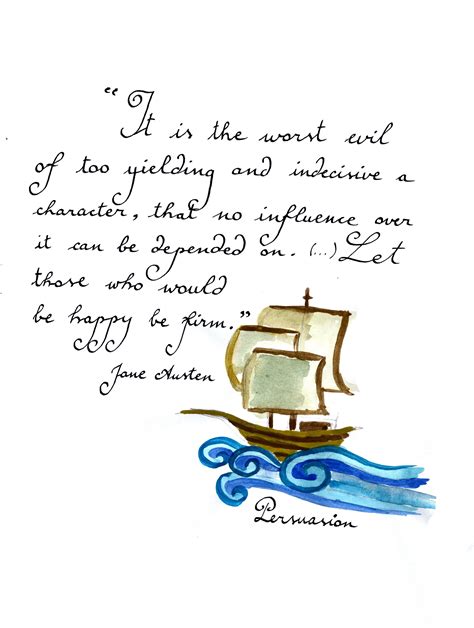 “It is the worst evil
of too yielding and indecisive a
character, that no influence over
it can be depended on. (...) Let
those who would
be happy be firm.”
Jane Austen
Persuasion